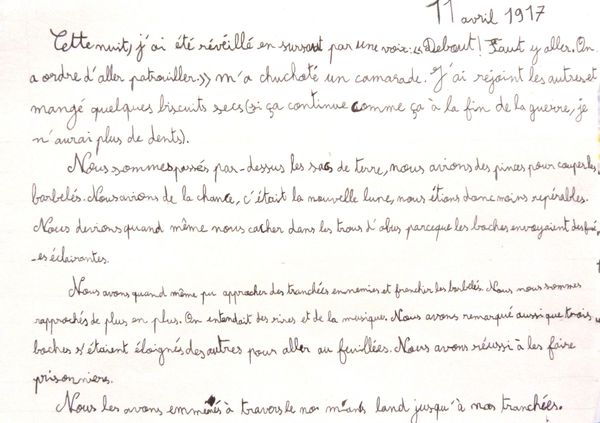 11 avril 1917
Cette nuit, j'ai été réveillé en sursaut par une voix: «Debout! Faut y aller. On
a ordre d'aller patrouiller.» m'a chuchoté un camarade. J'ai rejoint les autres et
mangé quelques biscuits secs (si ça continue comme ça à la fin de la guerre, je
n'aurai plus de dents).
Nous sommes passés par-dessus les sacs de terre, nous avions des pinces pour couper les
barbelés. Nous avions de la chance, c'était la nouvelle lune, nous étions donc moins repérables.
Nous devions quand même nous cacher dans les trous d'obus parceque les boches envoyaient des fusé
-es éclairantes.
Nous avons quand même pu approcher des tranchées ennemies et franchir les barbelés. Nous nous sommes
rapprochés de plus en plus. On entendait des rires et de la musique. Nous avons remarqué aussi que trois
boches s'étaient éloignés des autres pour aller au feuillées. Nous avons réussi à les faire
prisonniers.
Nous les avons emmenés à travers le no man's land jusqu'à nos tranchées.